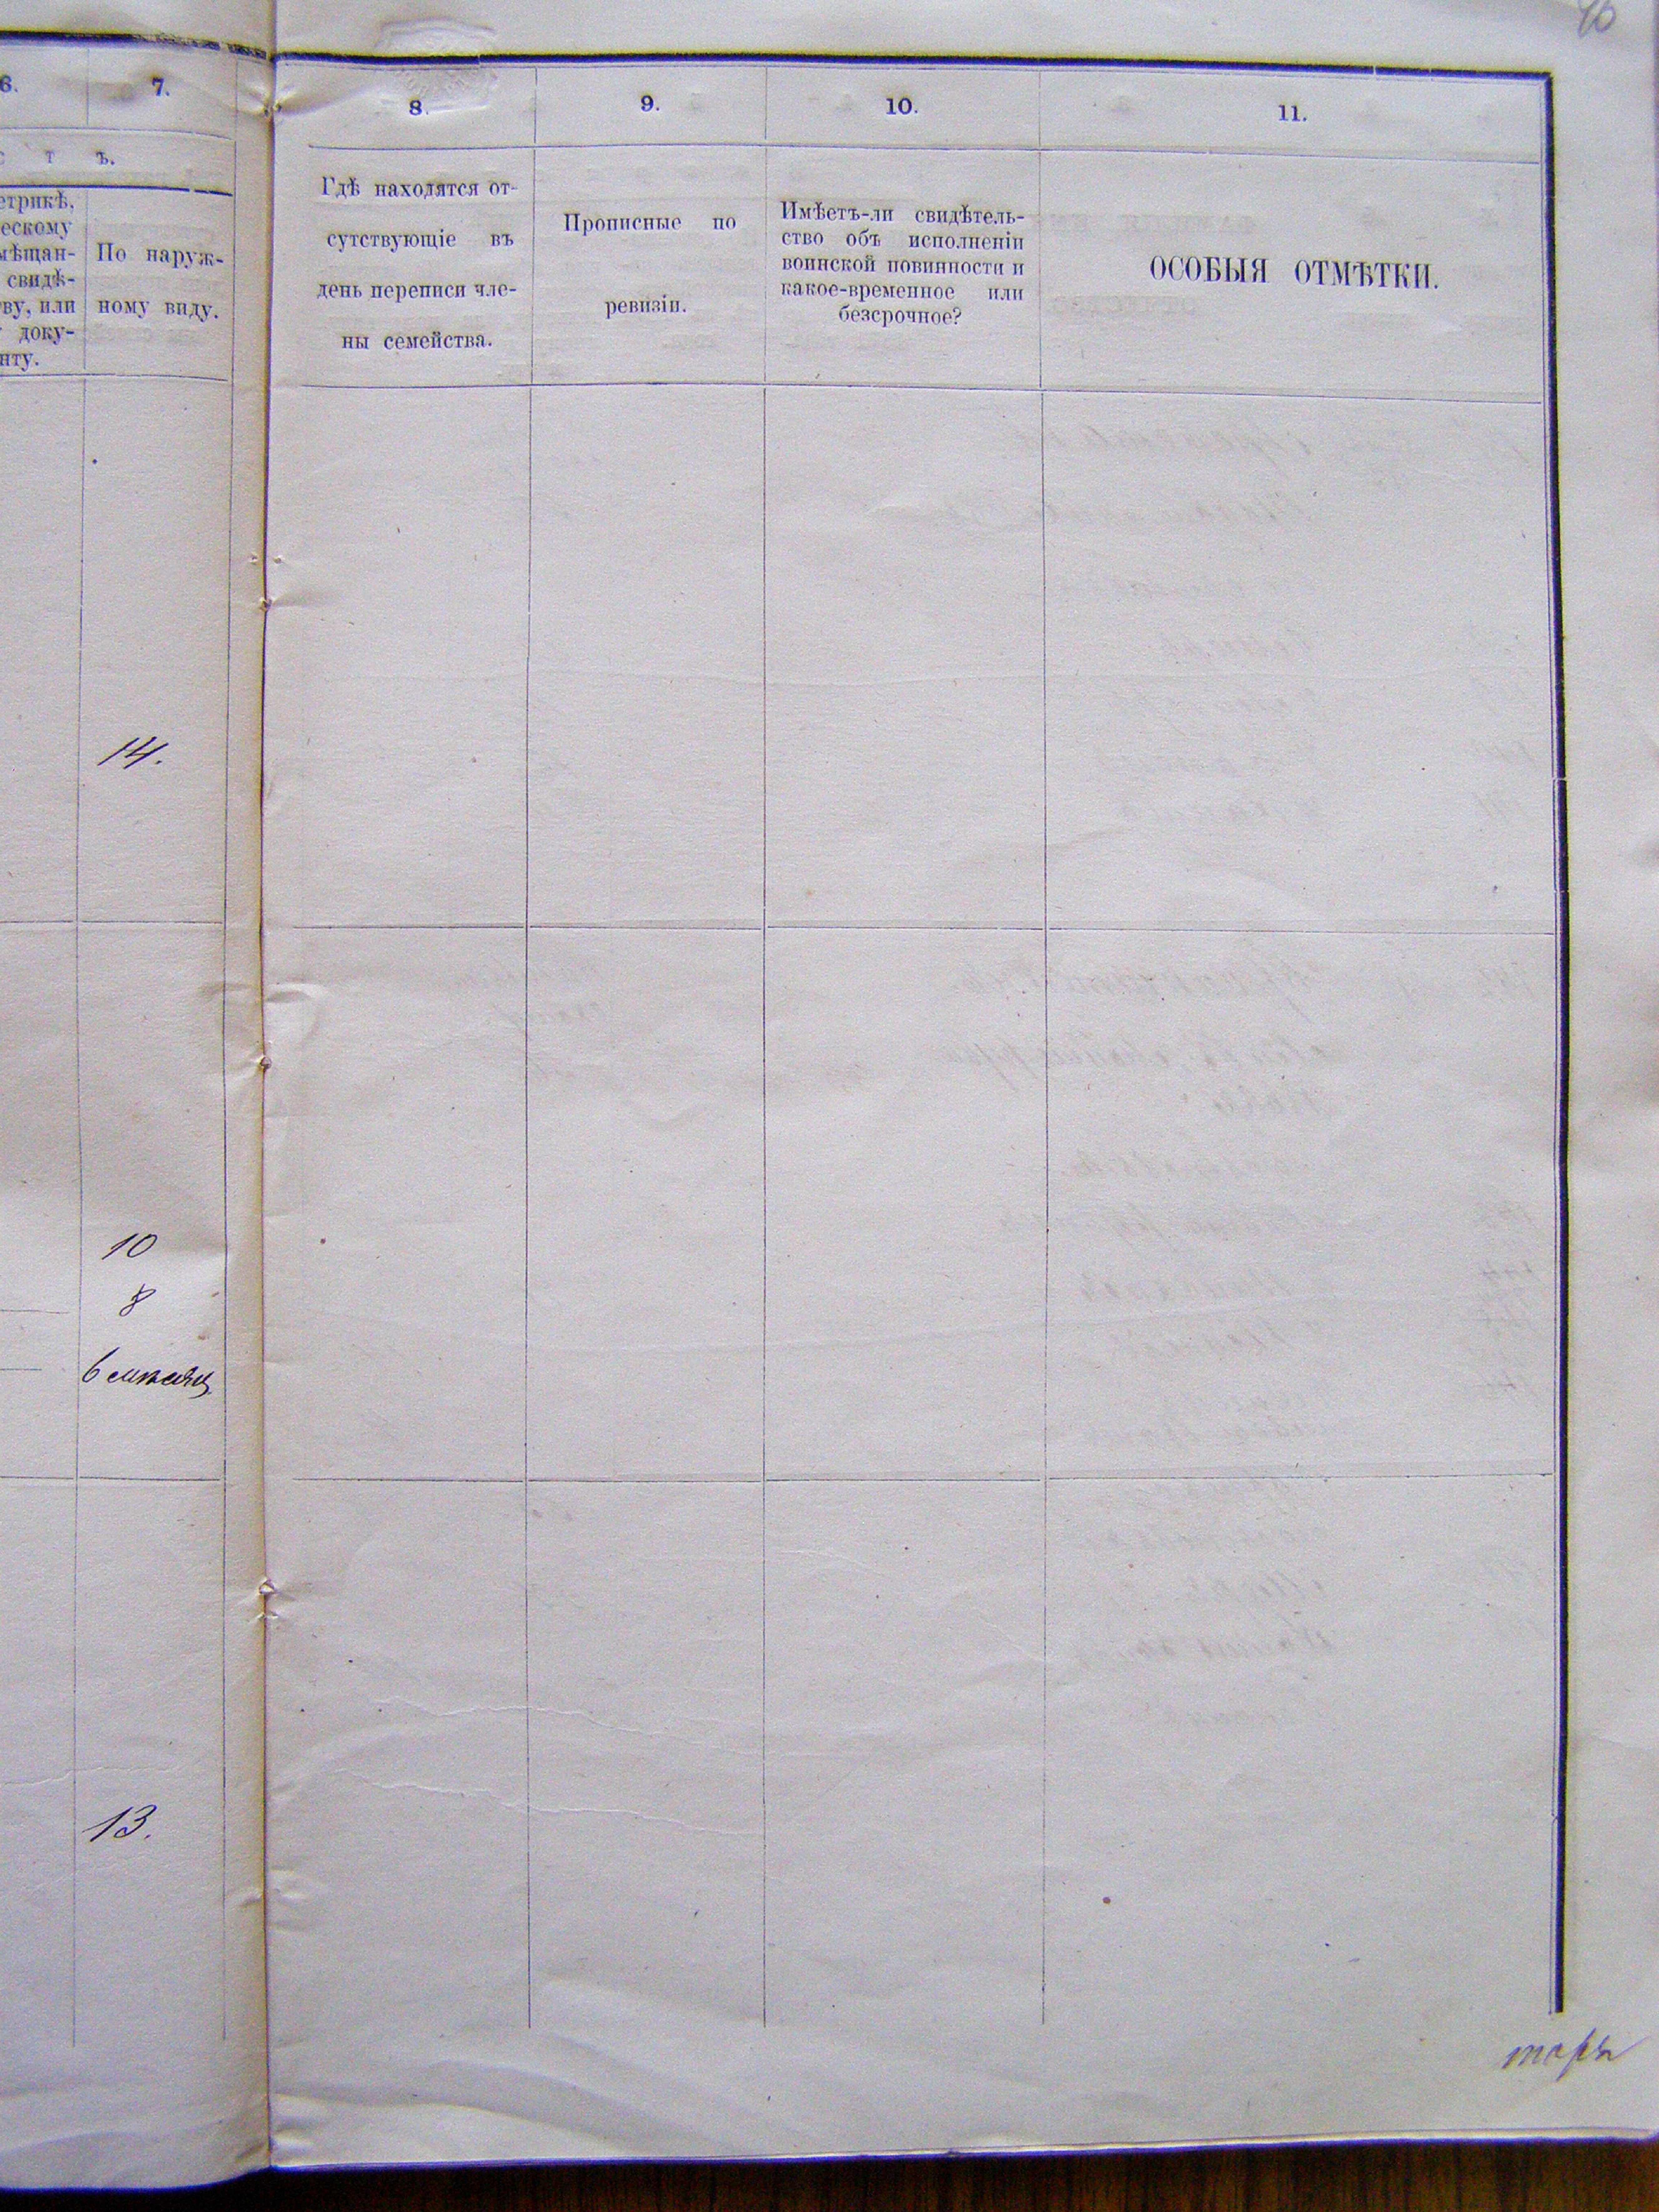 6.
7.
т ъ.
етрикѣ,
ескому
мѣщан-
свидѣ-
ву, или
доку-
нту.
По наруж-
ному виду.
14.
10
8
6 месяц
13.
8.
9.
10.
11.
Гдѣ находятся от-
сутствующіе въ
день переписи чле-
ны семейства.
Прописные по
ревизіи.
Имѣетъ-ли свидѣтель-
ство объ исполненіи
воинской повинности и
какое-временное или
безсрочное?
ОСОБЫЯ ОТМѢТКИ.